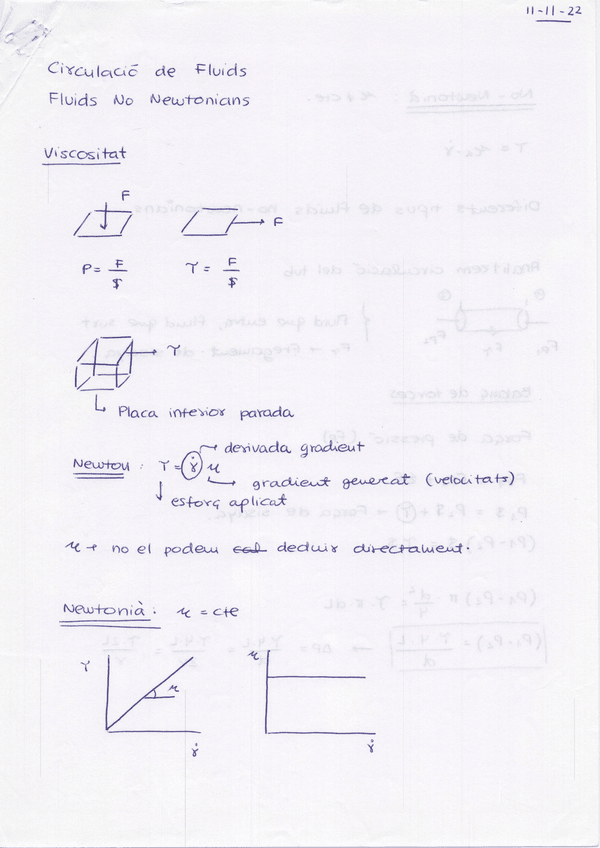 11-11-22
Circulació de Fluids
Fluids No Newtonians
Viscositat
F
F
P = F/S
τ = F/S
τ
Placa inferior parada
derivada gradient
Newton : τ = γ̇ μ
gradient generat (velocitats)
esforç aplicat
μ → no el podem deduir directament.
Newtonià : μ = cte
τ
μ
γ̇
μ
γ̇